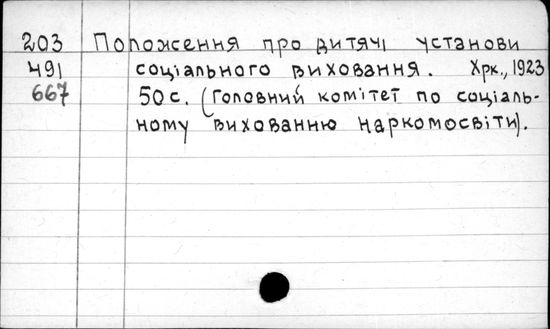 203 Положення про дитячі установи
491 соціального виховання. Хрк., 1923
667 50 с. (Головний комітет по соціаль-
ному вихованню Наркомосвіти).